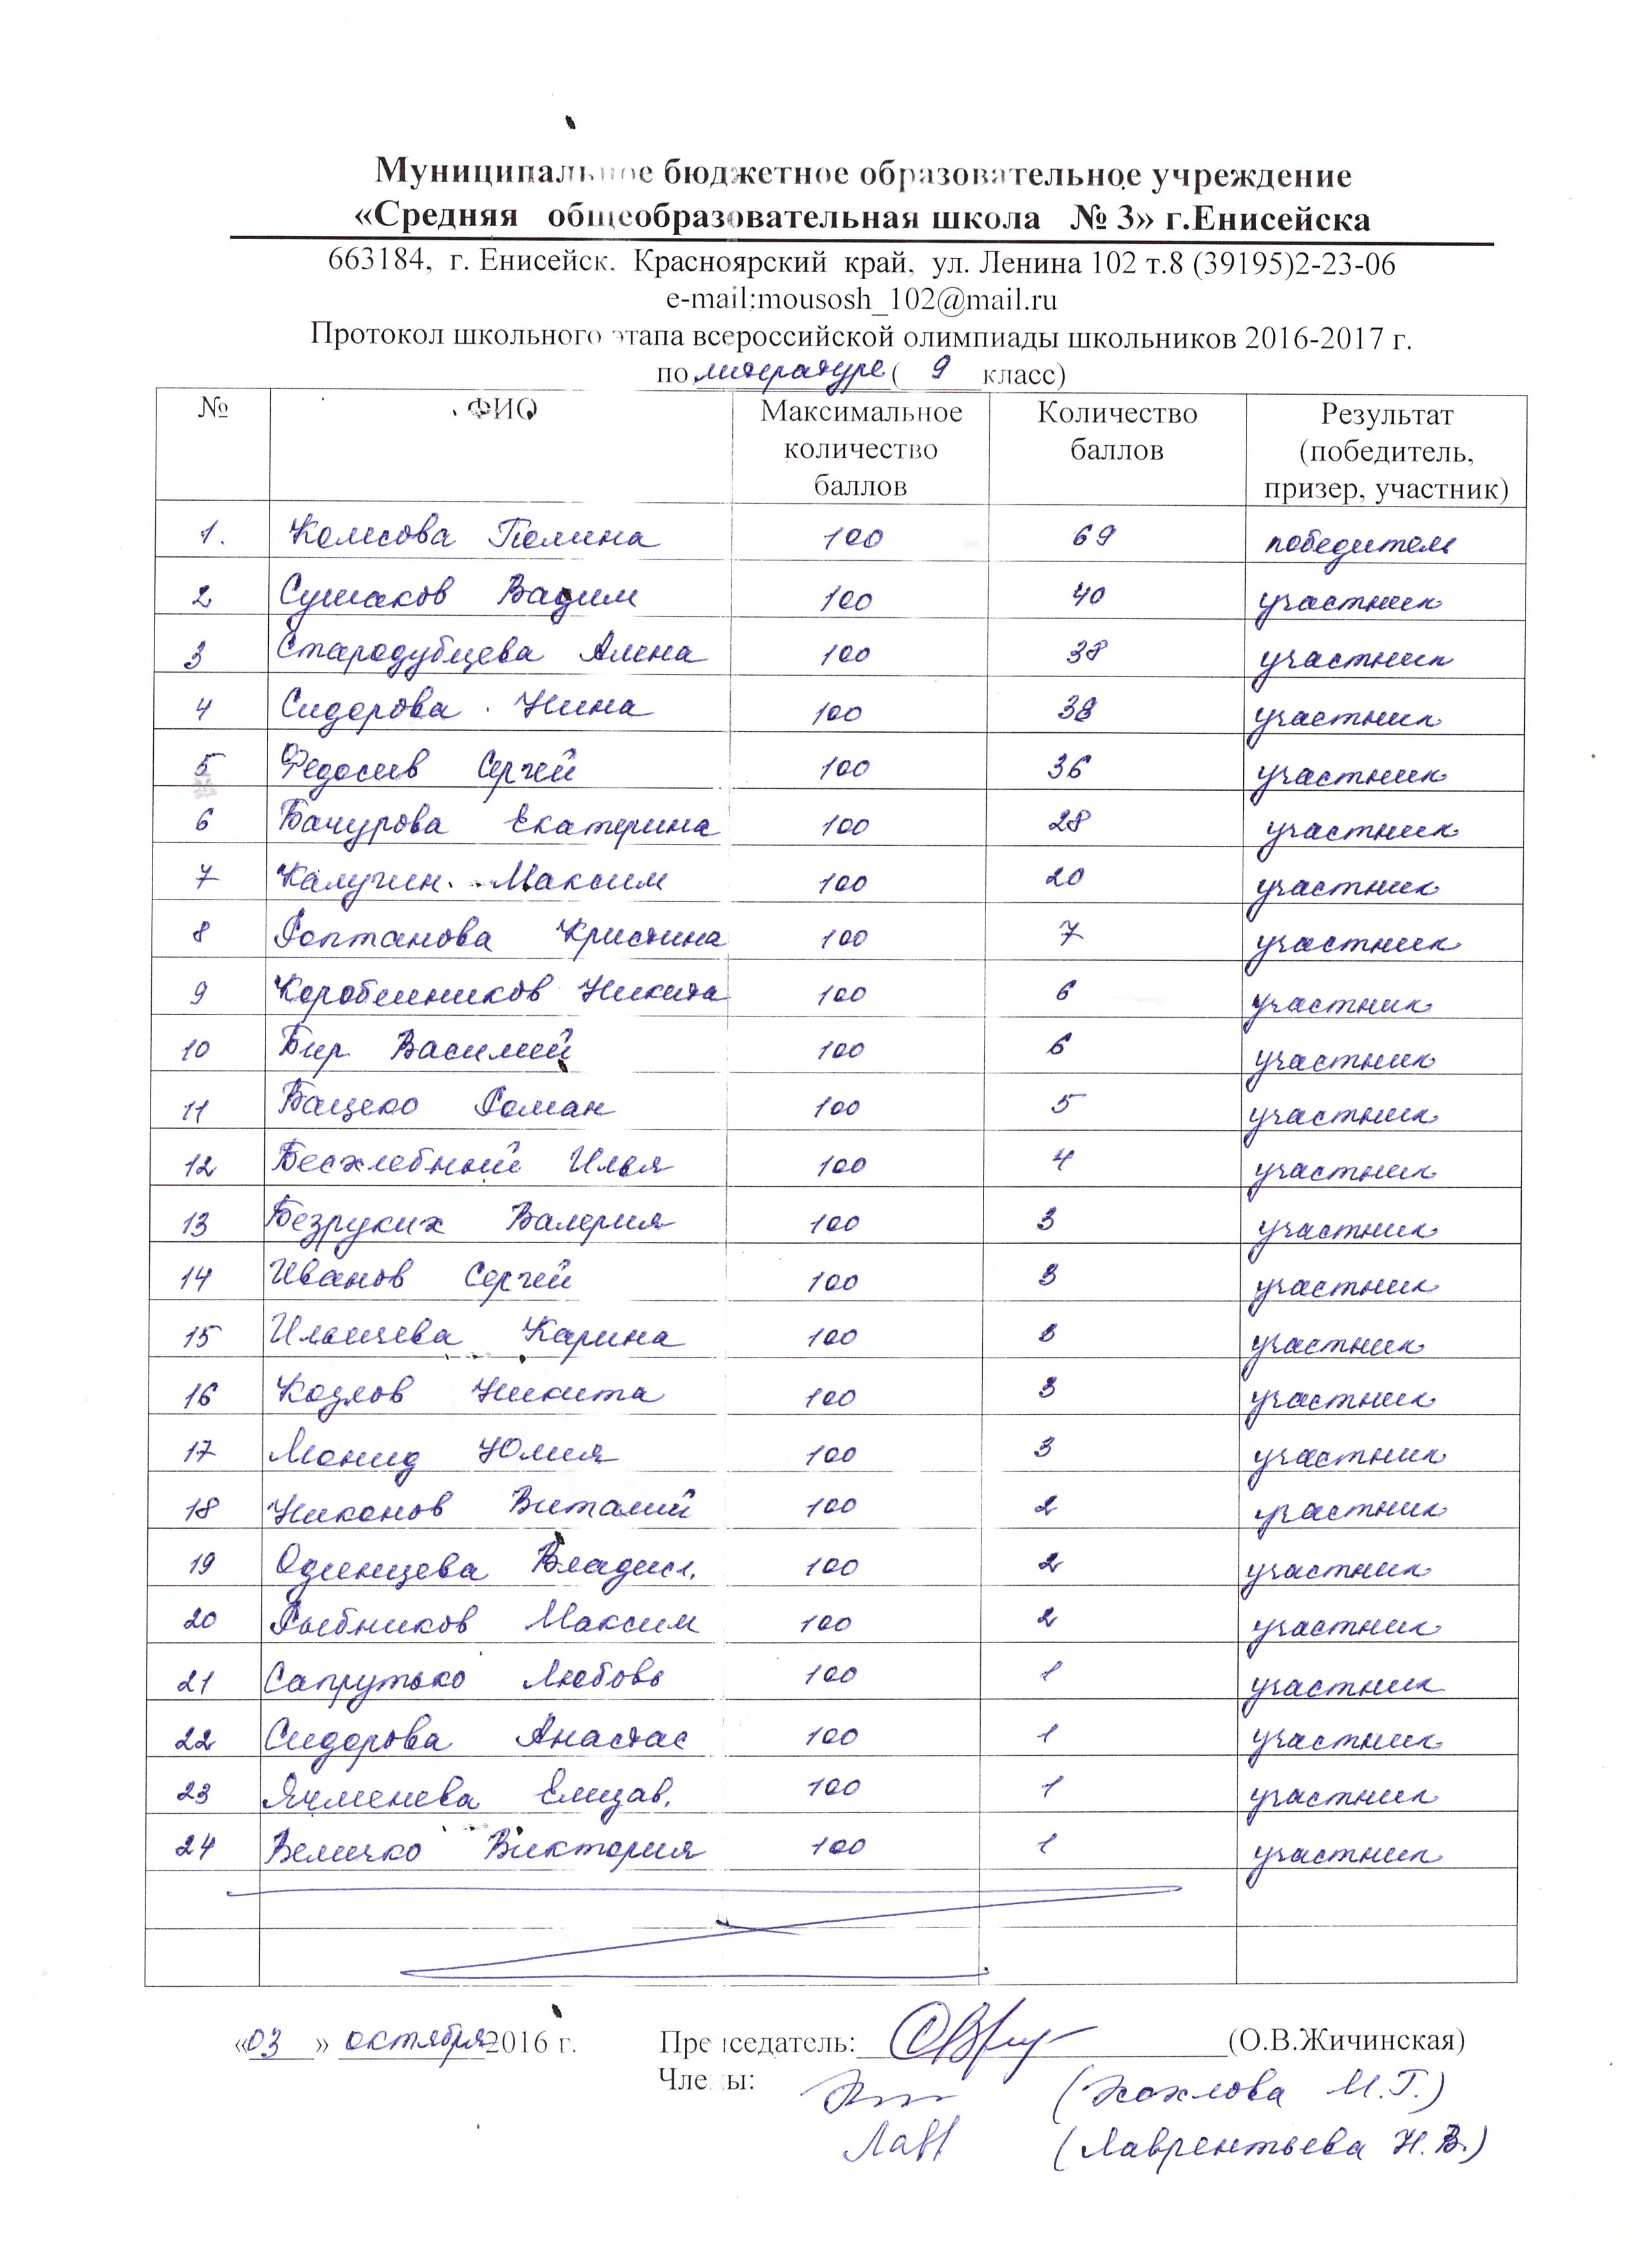 Муниципальное бюджетное образовательное учреждение
«Средняя общеобразовательная школа № 3» г.Енисейска
663184, г. Енисейск. Красноярский край, ул. Ленина 102 т.8 (39195)2-23-06
e-mail:mousosh_102@mail.ru
Протокол школьного этапа всероссийской олимпиады школьников 2016-2017 г.
по литературе ( 9 класс)
№ ФИО Максимальное количество баллов Количество баллов Результат (победитель, призер, участник)
1. Колесова Полина 100 69 победитель
2 Сушаков Вадим 100 40 участник
3 Стародубцева Алена 100 38 участник
4 Сидорова Нина 100 38 участник
5 Федосеев Сергей 100 36 участник
6 Бачурова Екатерина 100 28 участник
7 Калугин Максим 100 20 участник
8 Роптанова Кристина 100 7 участник
9 Коробейников Никита 100 6 участник
10 Бир Василий 100 6 участник
11 Роман 100 5 участник
12 Бесхлебный Илья 100 4 участник
13 Безруких Валерия 100 3 участник
14 Иванов Сергей 100 3 участник
15 Ильичева Карина 100 3 участник
16 Козлов Никита 100 3 участник
17 Монид Юлия 100 3 участник
18 Никонов Виталий 100 2 участник
19 Одинцева Владисл. 100 2 участник
20 Рыбников Максим 100 2 участник
21 Сапрутько Любовь 100 1 участник
22 Сидорова Анастас 100 1 участник
23 Ячменева Елизав. 100 1 участник
24 Величко Виктория 100 1 участник
«03» октября 2016 г. Председатель: (О.В.Жичинская)
Члены: (Хохлова М.Г.)
Лавр (Лаврентьева Н.В.)